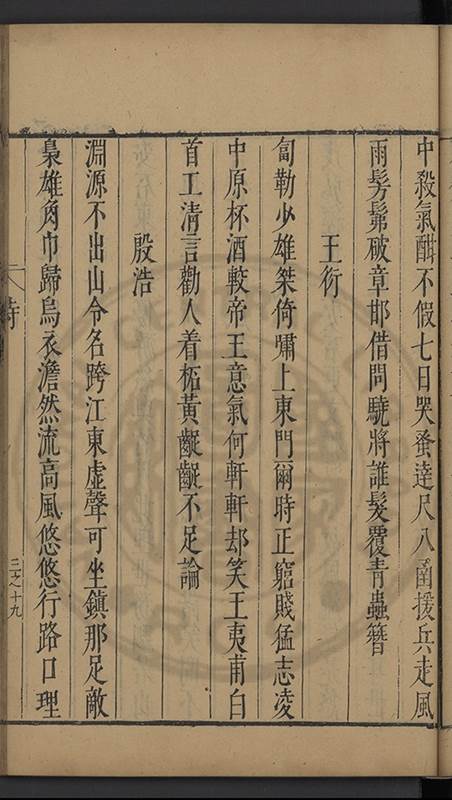 中殺氣酣不假七日哭蚤達尺八函援兵走風
雨髣髴破章邯借問驍將誰髮覆青蟲簪
王衍
匐勒少雄桀倚嘯上東門爾時正窮賤猛志凌
中原杯酒較帝王意氣何軒軒却笑王夷甫白
首工清言勸人着柘黃齷齪不足論
殷浩
淵源不出山令名跨江東虛聲可坐鎮那足敵
梟雄角巾歸烏衣澹然流高風悠悠行路口理
詩
三之十九